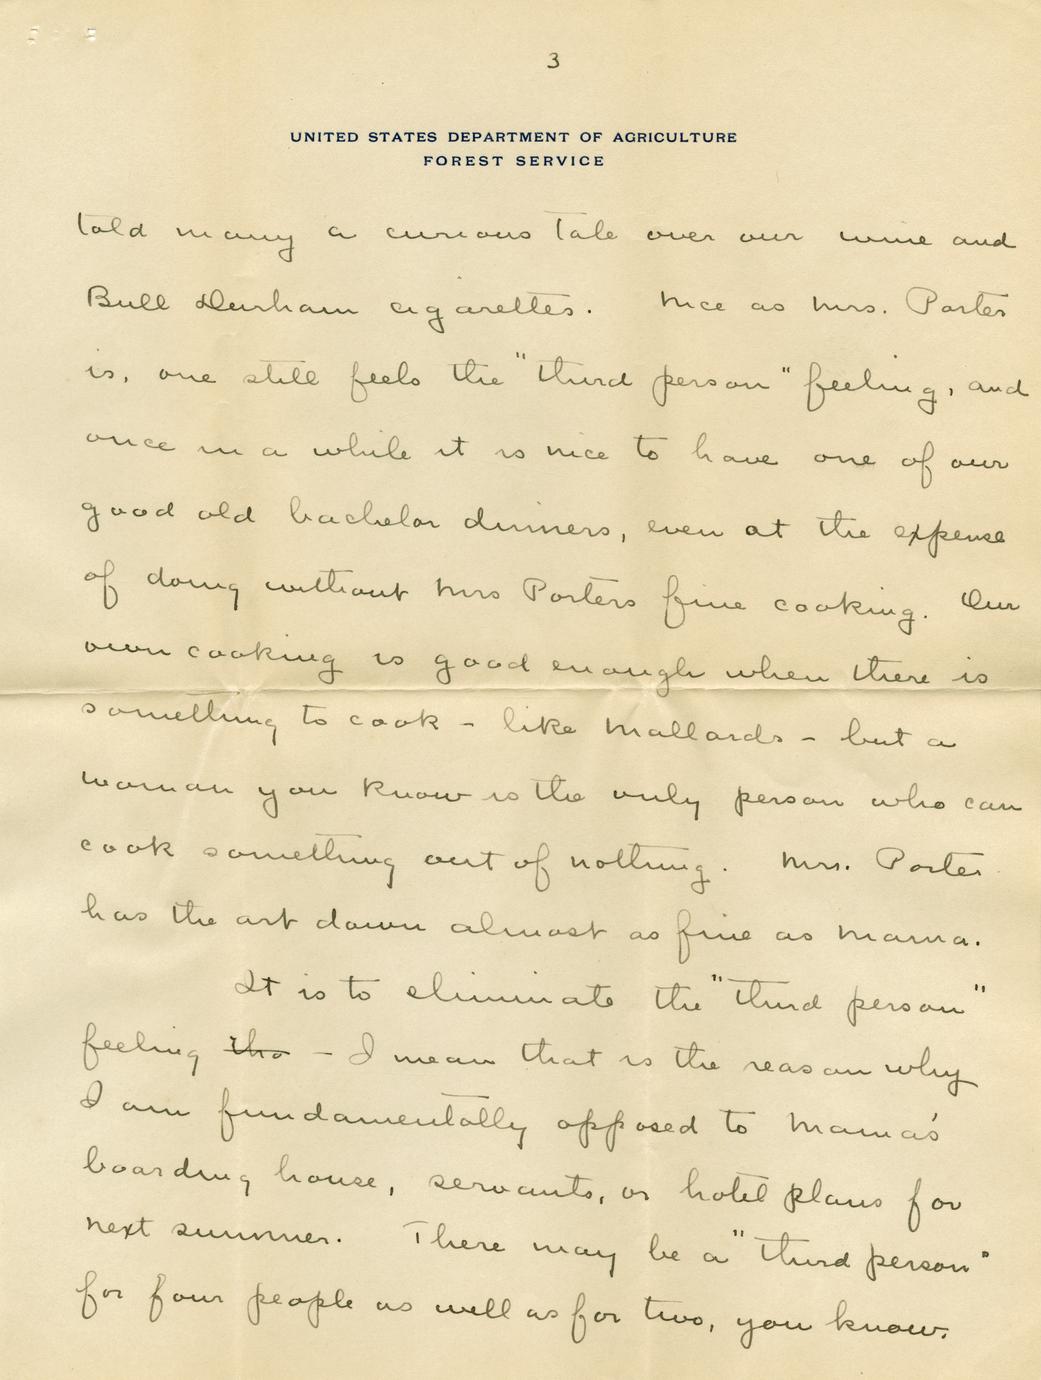 3
UNITED STATES DEPARTMENT OF AGRICULTURE
FOREST SERVICE
told many a curious tale over our wine and
Bull Durham cigarettes. Nice as Mrs. Porter
is, one still feels the "third person" feeling, and
once in a while it is nice to have one of our
good old bachelor dinners, even at the expense
of doing without Mrs Porters fine cooking. Our
own cooking is good enough when there is
something to cook - like Mallards - but a
woman you know is the only person who can
cook something out of nothing. Mrs. Porter
has the art down almost as fine as Mama.
It is to eliminate the "third person"
feeling tho - I mean that is the reason why
I am fundamentally opposed to Mama's
boarding house, servants, or hotel plans for
next summer. There may be a "third person"
for four people as well as for two, you know.